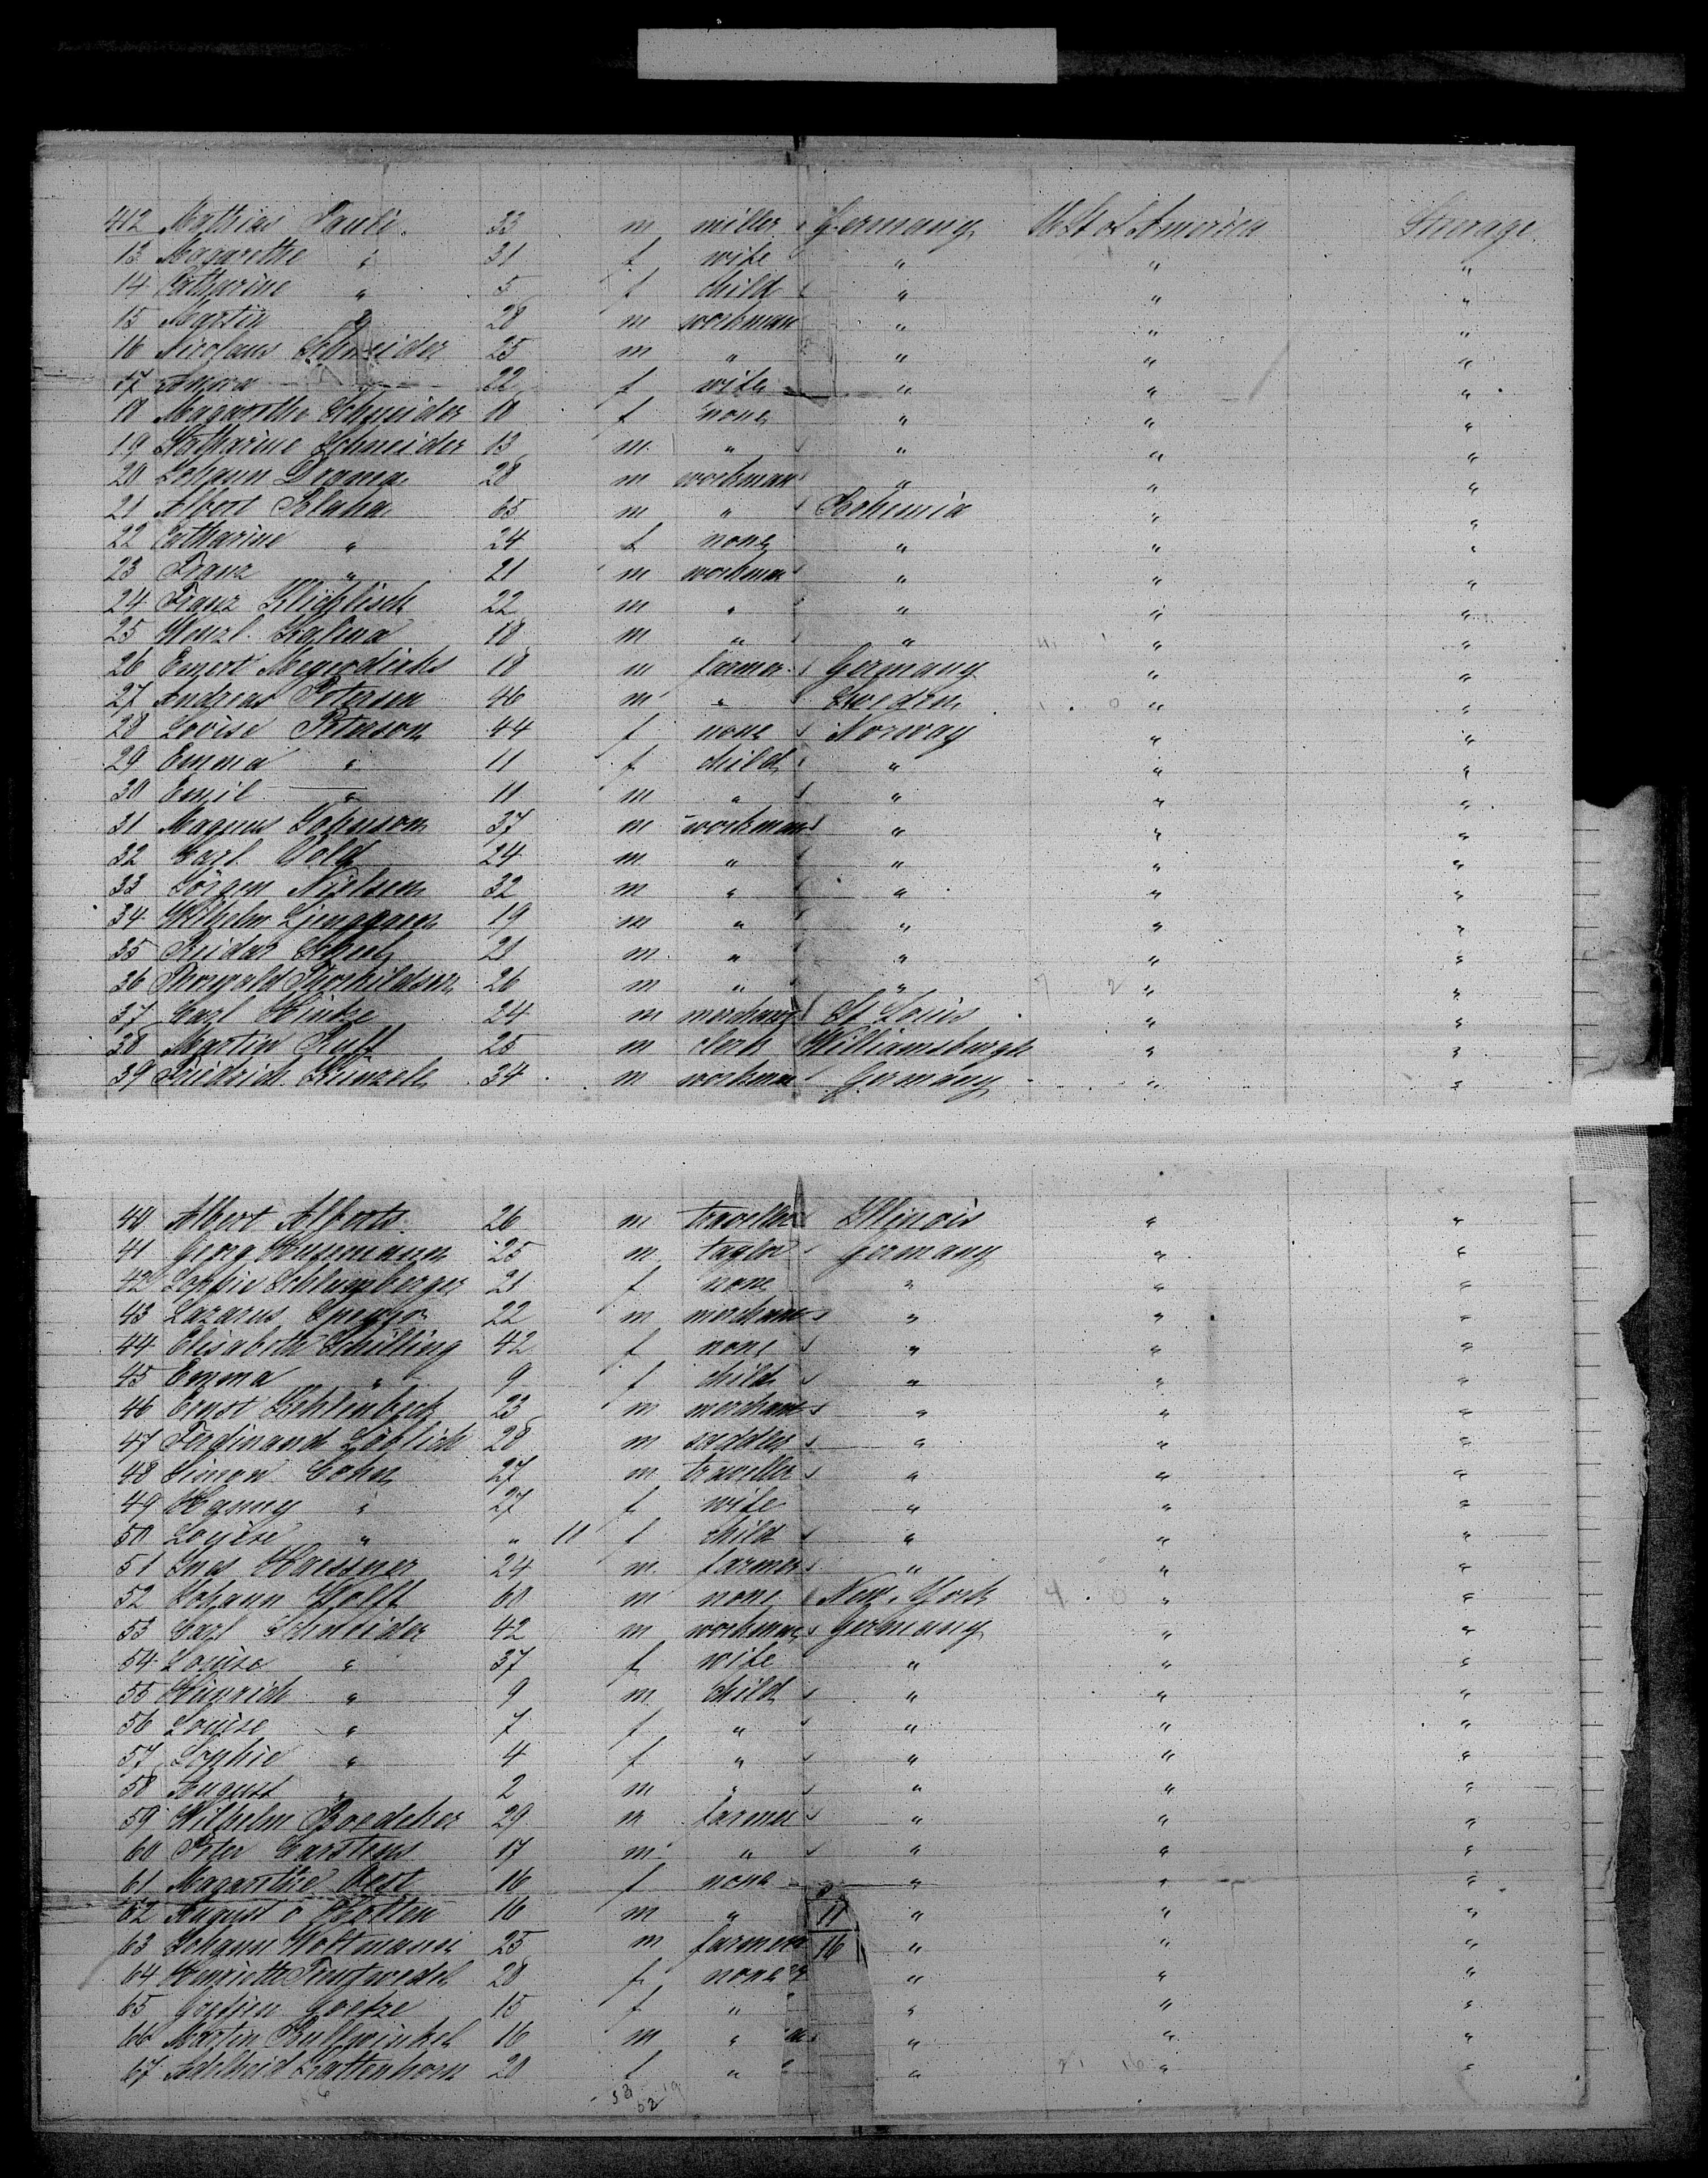 412 Mathias Pauli. 33 m miller Germany U St of America Steerage
13 Magarethe " 31 f wife " " "
14 Catharine " 5 f child " " "
15 Martin " 28 m workman " " "
16 Nicolaus Schneider 25 m " " " "
17 Anna " 22 f wife " " "
18 Magarethe Schneider 18 f none " " "
19 Katharine Schneider 13 m " " " "
20 Johann 28 m workman " " "
21 Albert Blaha 65 m " Bohemia " "
22 Catharine " 24 f none " " "
23 Franz " 21 m workman " " "
24 Franz 22 m " " " "
25 Wenzl. 18 m " " " "
26 18 m farmer Germany " "
27 Andreas Petersen 46 m " Sweden " "
28 Lovise Peterson 44 f none Norway " "
29 Emma " 11 f child " " "
30 Emil " 11 m " " " "
31 Magnus Johnson 37 m workman " " "
32 Carl 24 m " " " "
33 Jörgen Nielsen 32 m " " " "
34 Wilhelm 19 m " " " "
35 Reidar 21 m " " " "
36 Thorvald Thorkildsen 26 m " " " "
37 Carl Hintze 24 m merchant St Louis " "
38 Martin Ruff 25 m clerk Williamsburgh " "
39 Friedrich Künzel 34 m workman Germany " "
40 Albert Alberts 26 m traveller Illinois " "
41 Georg 25 m taylor Germany " "
42 Sophie Schlumberger 21 f none " " "
43 Lazarus 22 m merchant " " "
44 Elisabeth Schilling 42 f none " " "
45 Emma " 9 f child " " "
46 Ernst Kehlenbeck 23 m merchant " " "
47 Ferdinand Löblich 28 m saddler " " "
48 Simon Cohn 27 m traveller " " "
49 " 27 f wife " " "
50 Louise " " 11 f child " " "
51 Haessner 24 m farmer " " "
52 Johann Wolff 60 m none New York " "
53 Carl Schneider 42 m workman Germany " "
54 Louise " 37 f wife " " "
55 Hinrich " 9 m child " " "
56 Louise " 7 f " " " "
57 Sophie " 4 f " " " "
58 August " 2 m " " " "
59 Wilhelm Boedeker 29 m farmer " " "
60 Peter Carstens 17 m " " " "
61 Magarethe 16 f none " " "
62 August 16 m " 11 " " "
63 Johann Woltmann 25 m farmer 16 " " "
64 Henriette 28 f none " " "
65 Goetze 15 f " " " "
66 Martin Bullwinkel 16 m " " " "
67 Adelheid Kattenhorn 20 f " " " "